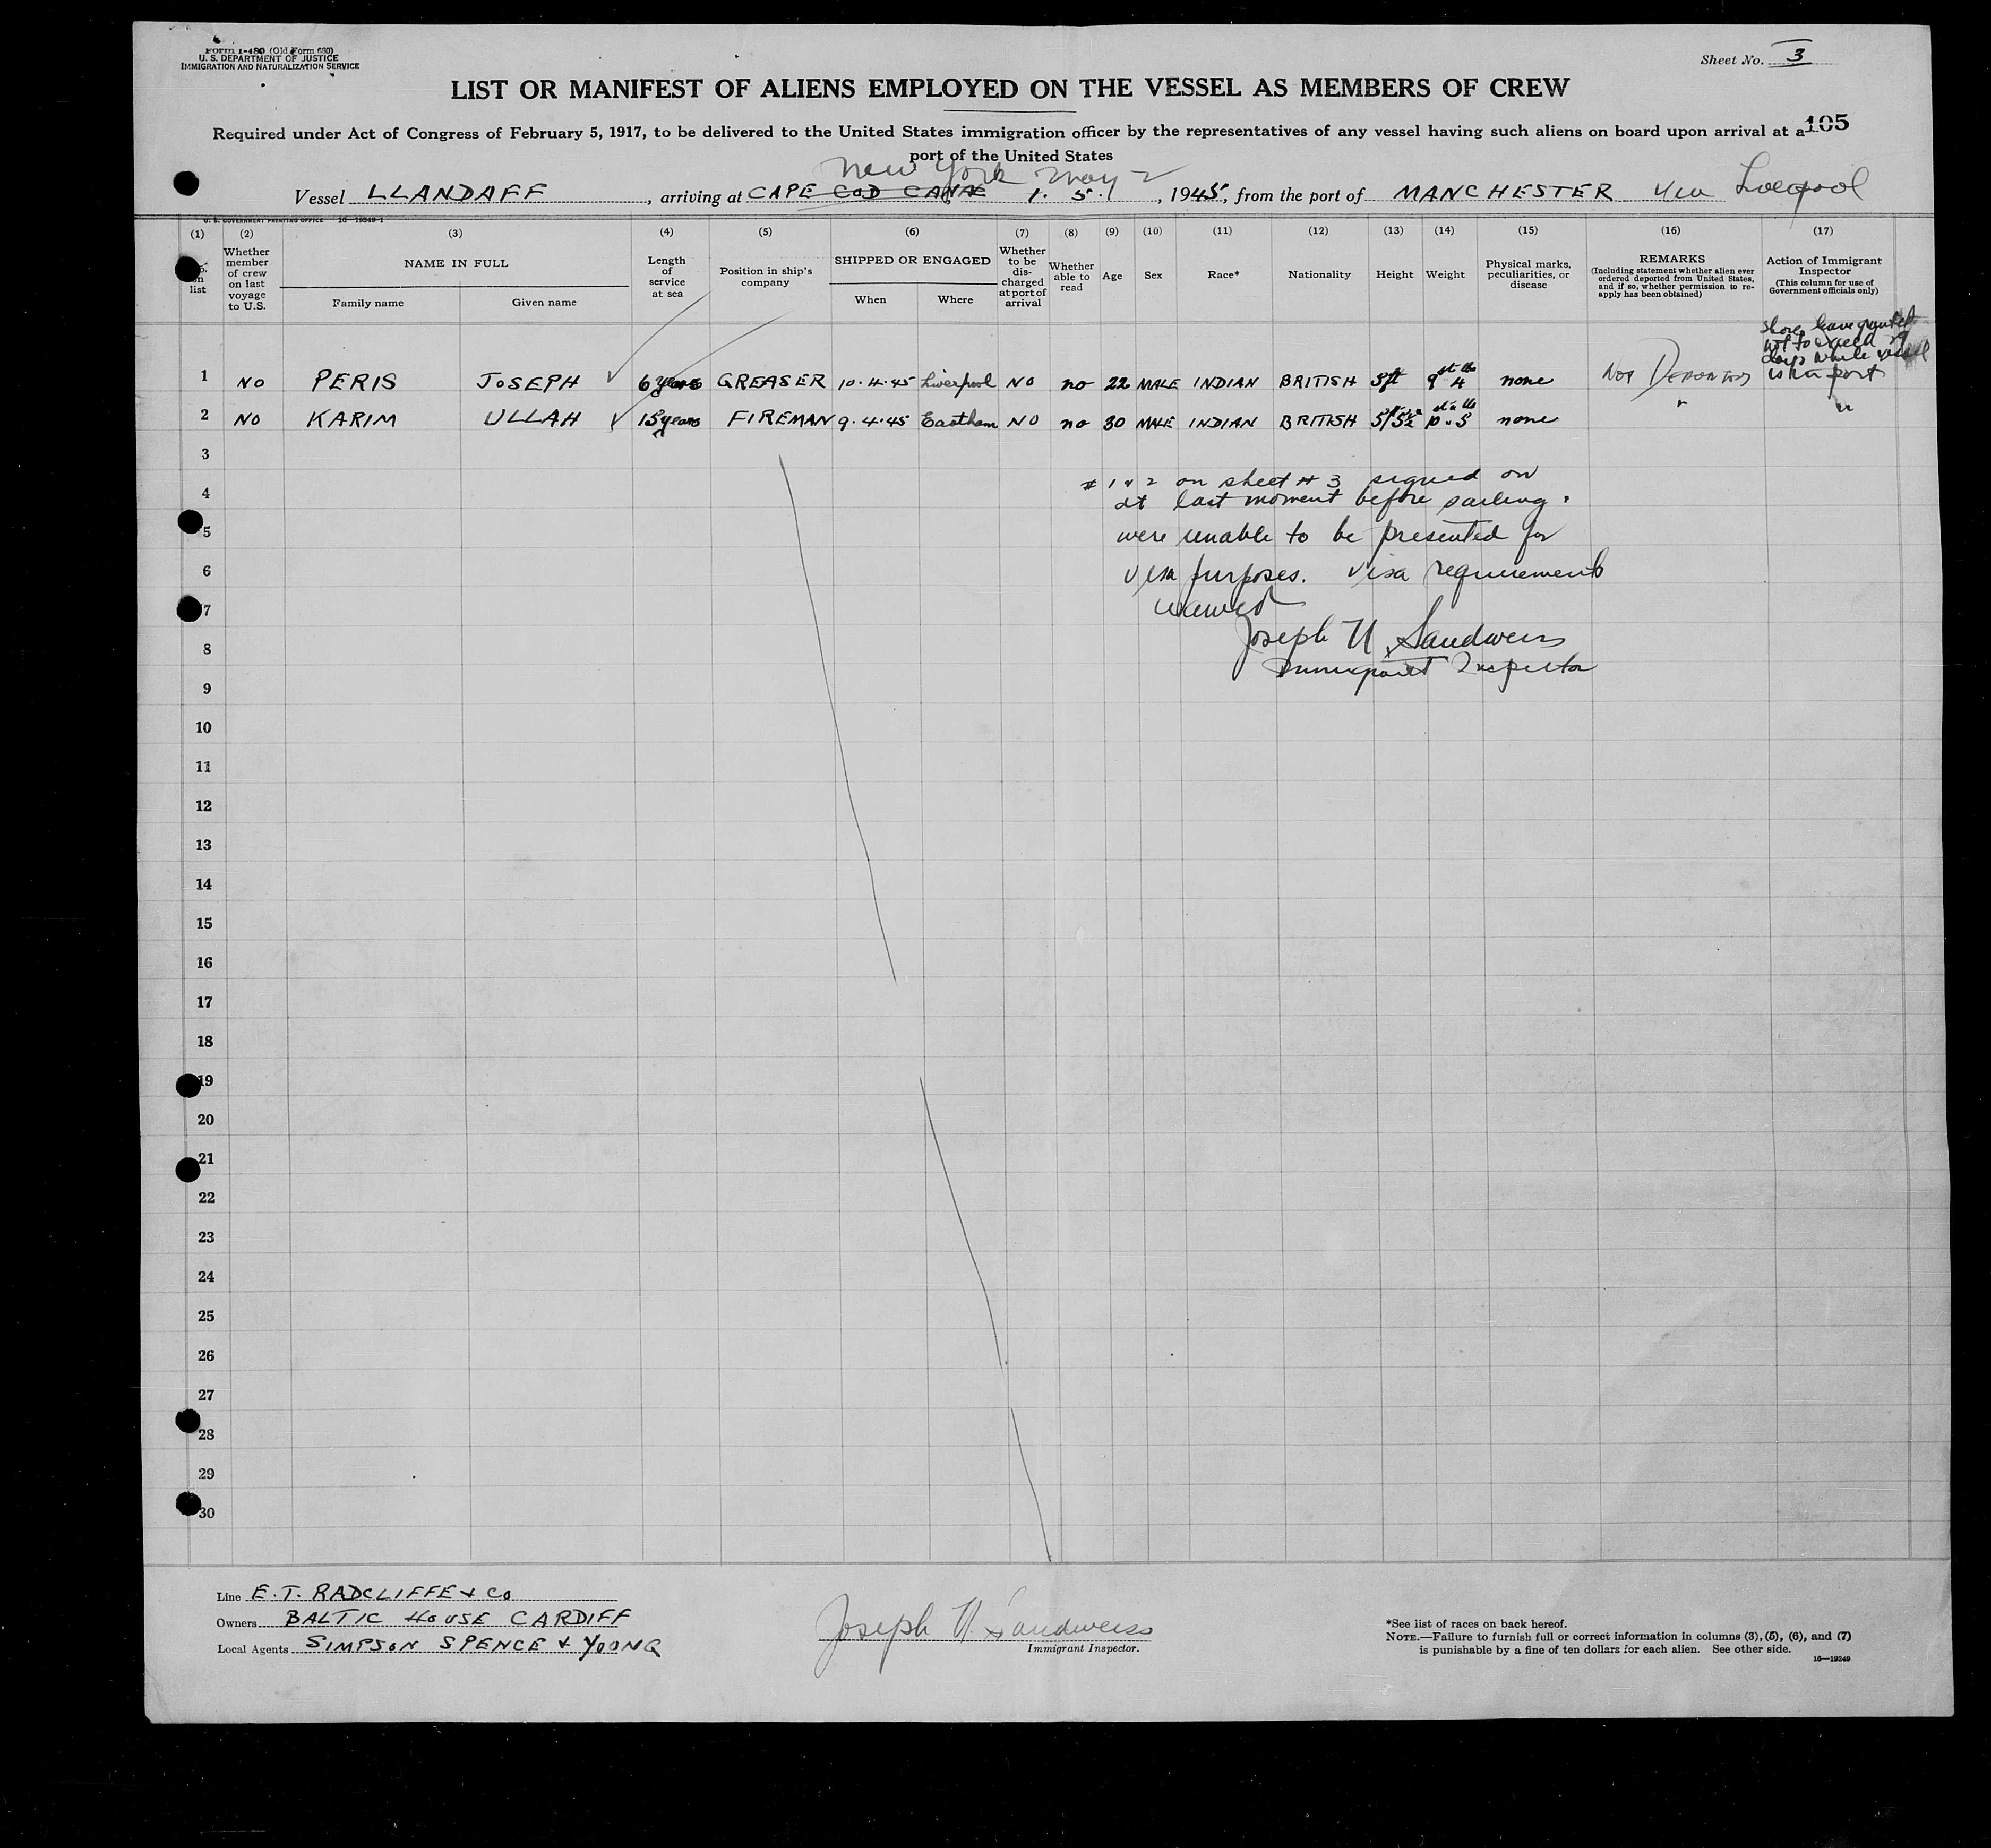 Form I-480 (Old Form 680)
U. S. DEPARTMENT OF JUSTICE
IMMIGRATION AND NATURALIZATION SERVICE
Sheet No. 3
LIST OR MANIFEST OF ALIENS EMPLOYED ON THE VESSEL AS MEMBERS OF CREW
Required under Act of Congress of February 5, 1917, to be delivered to the United States immigration officer by the representatives of any vessel having such aliens on board upon arrival at a
105
port of the United States
New York May 2
Vessel LLANDAFF, arriving at CAPE COD CANAL 1. 5., 1945, from the port of MANCHESTER via Liverpool
U. S. GOVERNMENT PRINTING OFFICE 16—19349-1
(1) (2) (3) (4) (5) (6) (7) (8) (9) (10) (11) (12) (13) (14) (15) (16) (17)
No. on list
Whether member of crew on last voyage to U.S.
NAME IN FULL
Family name
Given name
Length of service at sea
Position in ship's company
SHIPPED OR ENGAGED
When
Where
Whether to be discharged at port of arrival
Whether able to read
Age
Sex
Race*
Nationality
Height
Weight
Physical marks, peculiarities, or disease
REMARKS
(Including statement whether alien ever ordered deported from United States, and if so, whether permission to reapply has been obtained)
Action of Immigrant Inspector
(This column for use of Government officials only)
shore leave granted
not to exceed 29
days while vessel
is in port
1 NO PERIS JOSEPH 6 years GREASER 10.4.45 Liverpool NO no 22 MALE INDIAN BRITISH 5ft 9 st 4 lb none NOT DEPORTED
2 NO KARIM ULLAH 15 years FIREMAN 9.4.45 Eastham NO no 30 MALE INDIAN BRITISH 5/5½ 10 st 5 lb none " "
3
4
5
6
7
8
9
10
11
12
13
14
15
16
17
18
19
20
21
22
23
24
25
26
27
28
29
30
# 1 & 2 on sheet # 3 signed on
at last moment before sailing.
were unable to be presented for
visa purposes. Visa requirements
waived
Joseph N Sandweiss
Immigrant Inspector
Line E.T. RADCLIFFE & Co
Owners BALTIC HOUSE CARDIFF
Local Agents SIMPSON SPENCE & YOUNG
Joseph N. Sandweiss
Immigrant Inspector.
*See list of races on back hereof.
NOTE.—Failure to furnish full or correct information in columns (3), (5), (6), and (7)
is punishable by a fine of ten dollars for each alien. See other side.
16—19349